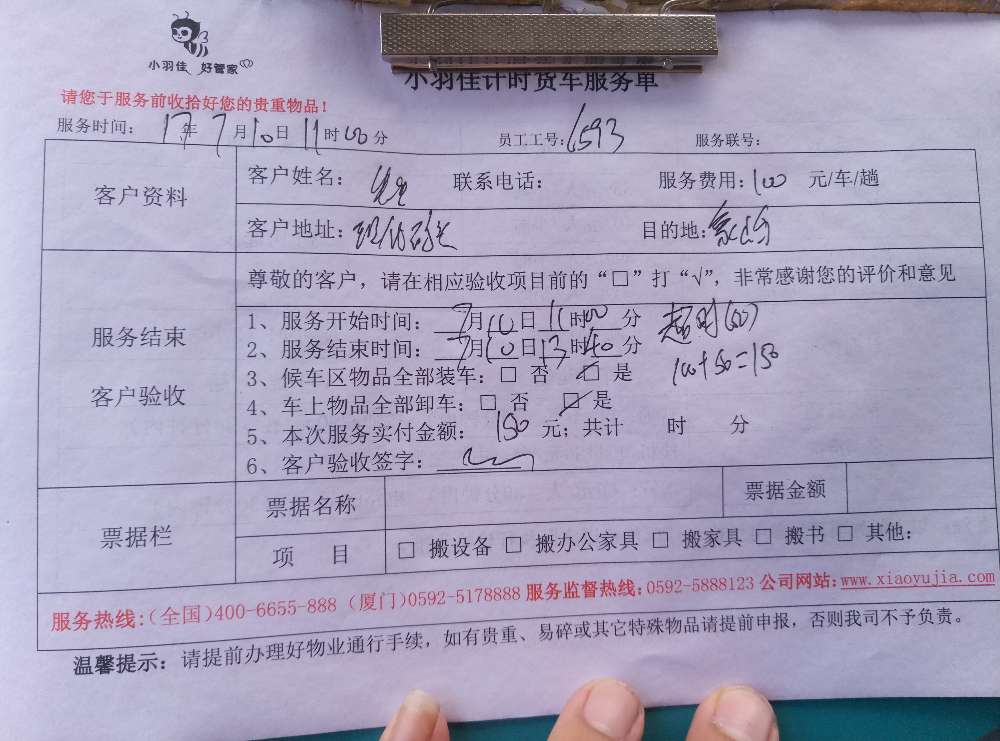 小羽佳 好管家
小羽佳计时货车服务单
请您于服务前收拾好您的贵重物品！
服务时间： 17年 7月10日 11时00分 员工工号：6593 服务联号：
客户资料
客户姓名： 联系电话： 服务费用：100 元/车/趟
客户地址： 目的地：
服务结束
客户验收
尊敬的客户，请在相应验收项目前的“□”打“√”，非常感谢您的评价和意见
1、服务开始时间：7月10日11时00分 超时(50)
2、服务结束时间：7月10日13时40分
100+50=150
3、候车区物品全部装车：□ 否 ☑ 是
4、车上物品全部卸车：□ 否 ☑ 是
5、本次服务实付金额： 150 元；共计 时 分
6、客户验收签字：
票据栏
票据名称 票据金额
项 目 □ 搬设备 □ 搬办公家具 □ 搬家具 □ 搬书 □ 其他：
服务热线：（全国）400-6655-888（厦门）0592-5178888 服务监督热线：0592-5888123 公司网站：www.xiaoyujia.com
温馨提示：请提前办理好物业通行手续，如有贵重、易碎或其它特殊物品请提前申报，否则我司不予负责。